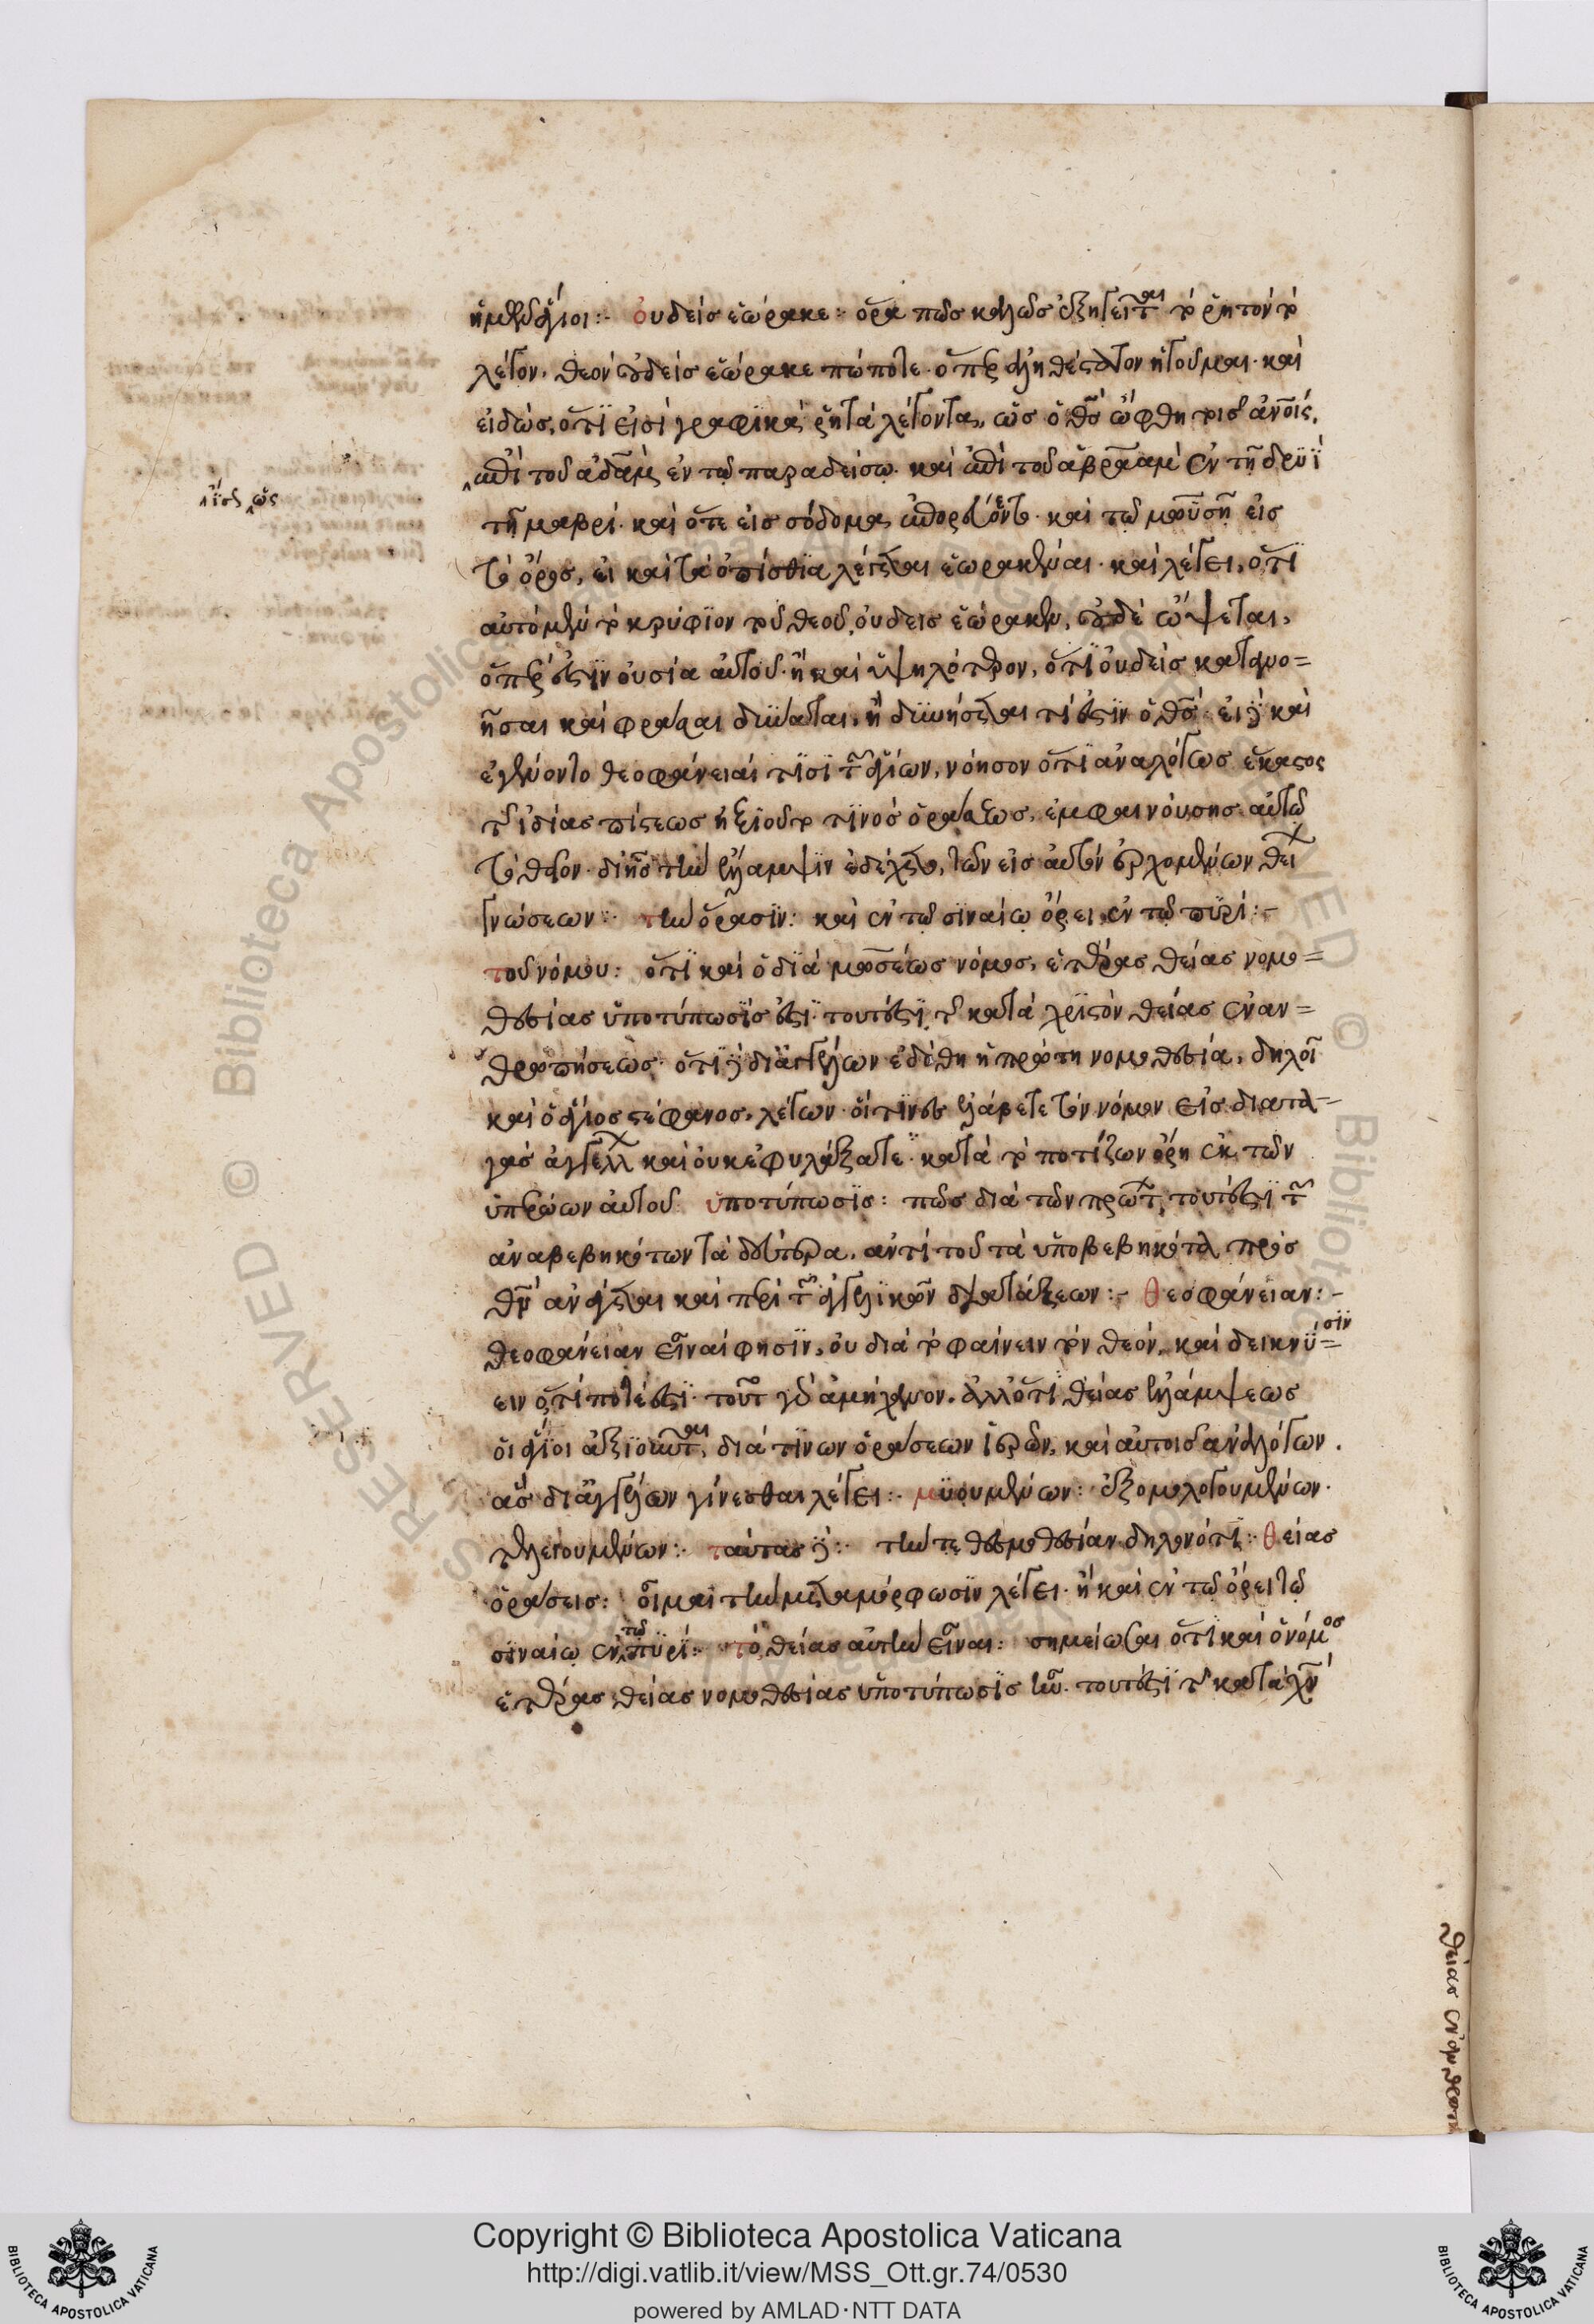 ἡμῶν ἅγιοι:· οὐδεὶς ἑώρακε: ὅρα πῶς καλῶς ἐξηγεῖται τὸ ῥητὸν τὸ
λέγον, θεὸν οὐδεὶς ἑώρακε πώποτε· ὅπερ καὶ
εἰδὼς, ὅτι εἰσὶ γραφικὰ ῥητὰ λέγοντα, ὡς ὁ θς ὤφθη τισὶν ἀνοις,
ἐπὶ τοῦ ἀδὰμ ἐν τῷ παραδείσῳ· καὶ ἐπὶ τοῦ ἀβραὰμ ἐν τῇ δρυῒ
ὡς
τῇ μαβρί· καὶ ὅτε εἰς σόδομα ἐπορεύετο· καὶ τῷ μωϋσῇ εἰς
τὸ ὄρος, εἰ καὶ τὰ ὀπίσθια λέγεται ἑωρακέναι· καὶ λέγει, ὅτι
αὐτὸ μὲν τὸ κρύφιον τοῦ θεοῦ, οὐδεὶς ἑώρακεν, οὐδὲ ὤψεται,
ὅπερ ἐστὶν οὐσία αὐτοῦ· ἢ καὶ ὑψηλότερον, ὅτι οὐδεὶς κατανο=
ῆσαι καὶ φράσαι δύναται, ἢ δυνήσεται τί ἐστιν ὁ θς· εἰ δὲ καὶ
ἐγένοντο θεοφάνειαί τισι τῶν ἁγίων, νόησον ὅτι ἀναλόγως ἕκαστος
τῆς ἰδίας πίστεως ἠξιοῦτο τινὸς ὁράσεως, ἐμφαινούσης αὐτῷ
τὸ θεῖον· δι' ἧς τὴν ἔλλαμψιν ἐδέχετο, τῶν εἰς αὐτὸν ἐρχομένων θείων
γνώσεων:· τὴν ὅρασιν: καὶ ἐν τῷ σιναίῳ ὄρει ἐν τῷ πυρί:-
τοῦ νόμου: ὅτι καὶ ὁ διὰ μωσέως νόμος, ἑτέρας θείας νομο=
θεσίας ὑποτύπωσίς ἐστι· τουτέστι τῆς κατὰ χριστὸν θείας ἐναν=
θρωπήσεως· ὅτι δὲ δι' ἀγγέλων ἐδόθη ἡ πρώτη νομοθεσία, δηλοῖ
καὶ ὁ ἅγιος στέφανος, λέγων· οἵτινες ἐλάβετε τὸν νόμον εἰς διατα=
γὰς ἀγγέλων καὶ οὐκ ἐφυλάξατε· κατὰ τὸ ποτίζων ὄρη ἐκ τῶν
ὑπερώων αὐτοῦ· ὑποτύπωσις: πῶς διὰ τῶν πρώτων, τουτέστι τῶν
ἀναβεβηκότων τὰ δεύτερα, ἀντὶ τοῦ τὰ ὑποβεβηκότα πρὸς
θν ἀνάγεται καὶ περὶ τῶν ἀγγελικῶν διατάξεων:- θεοφάνειαν:-
θεοφάνειαν εἶναί φησιν, οὐ διὰ τὸ φαίνειν τὸν θεόν, καὶ δεικνύ=
σιν
ειν ὅτι ποτέ ἐστι· τοῦτο γὰρ ἀμήχανον. ἀλλ' ὅτι θείας ἐλλάμψεως
οἱ ἅγιοι ἀξιοῦνται, διά τινων ὁράσεων ἱερῶν, καὶ αὐτοῖς ἀναλόγων.
ἃς δι' ἀγγέλων γίνεσθαι λέγει:· μυουμένων: ἐξομολογουμένων·
τελειουμένων:· ταύτας δὲ:· τήν τε θεσμοθεσίαν δηλονότι:· θείας
ὁράσεις: οἶμαι τὴν μεταμόρφωσιν λέγει· ἢ καὶ ἐν τῷ ὄρει τῷ
σιναίῳ ἐν τῷ πυρί:· τὸ θείας αὐτὴν εἶναι: σημείωσαι ὅτι καὶ ὁ νόμος
ἑτέρας θείας νομοθεσίας ὑποτύπωσις ἦν· τουτέστι τῆς κατὰ χν
θείας ἐνανθρωπή